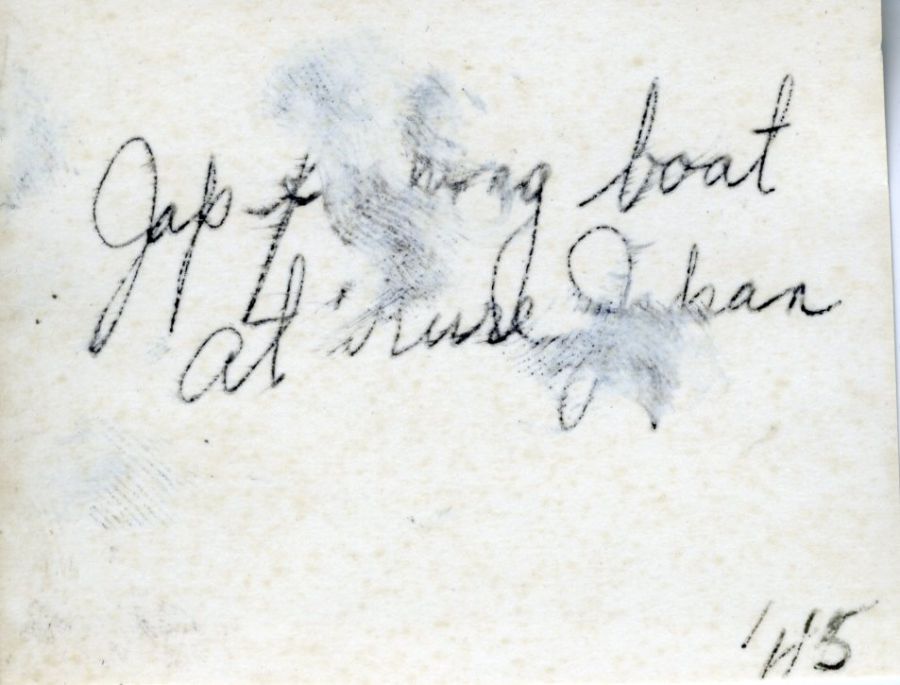 Jap fishing boat
at Kure Japan
'45